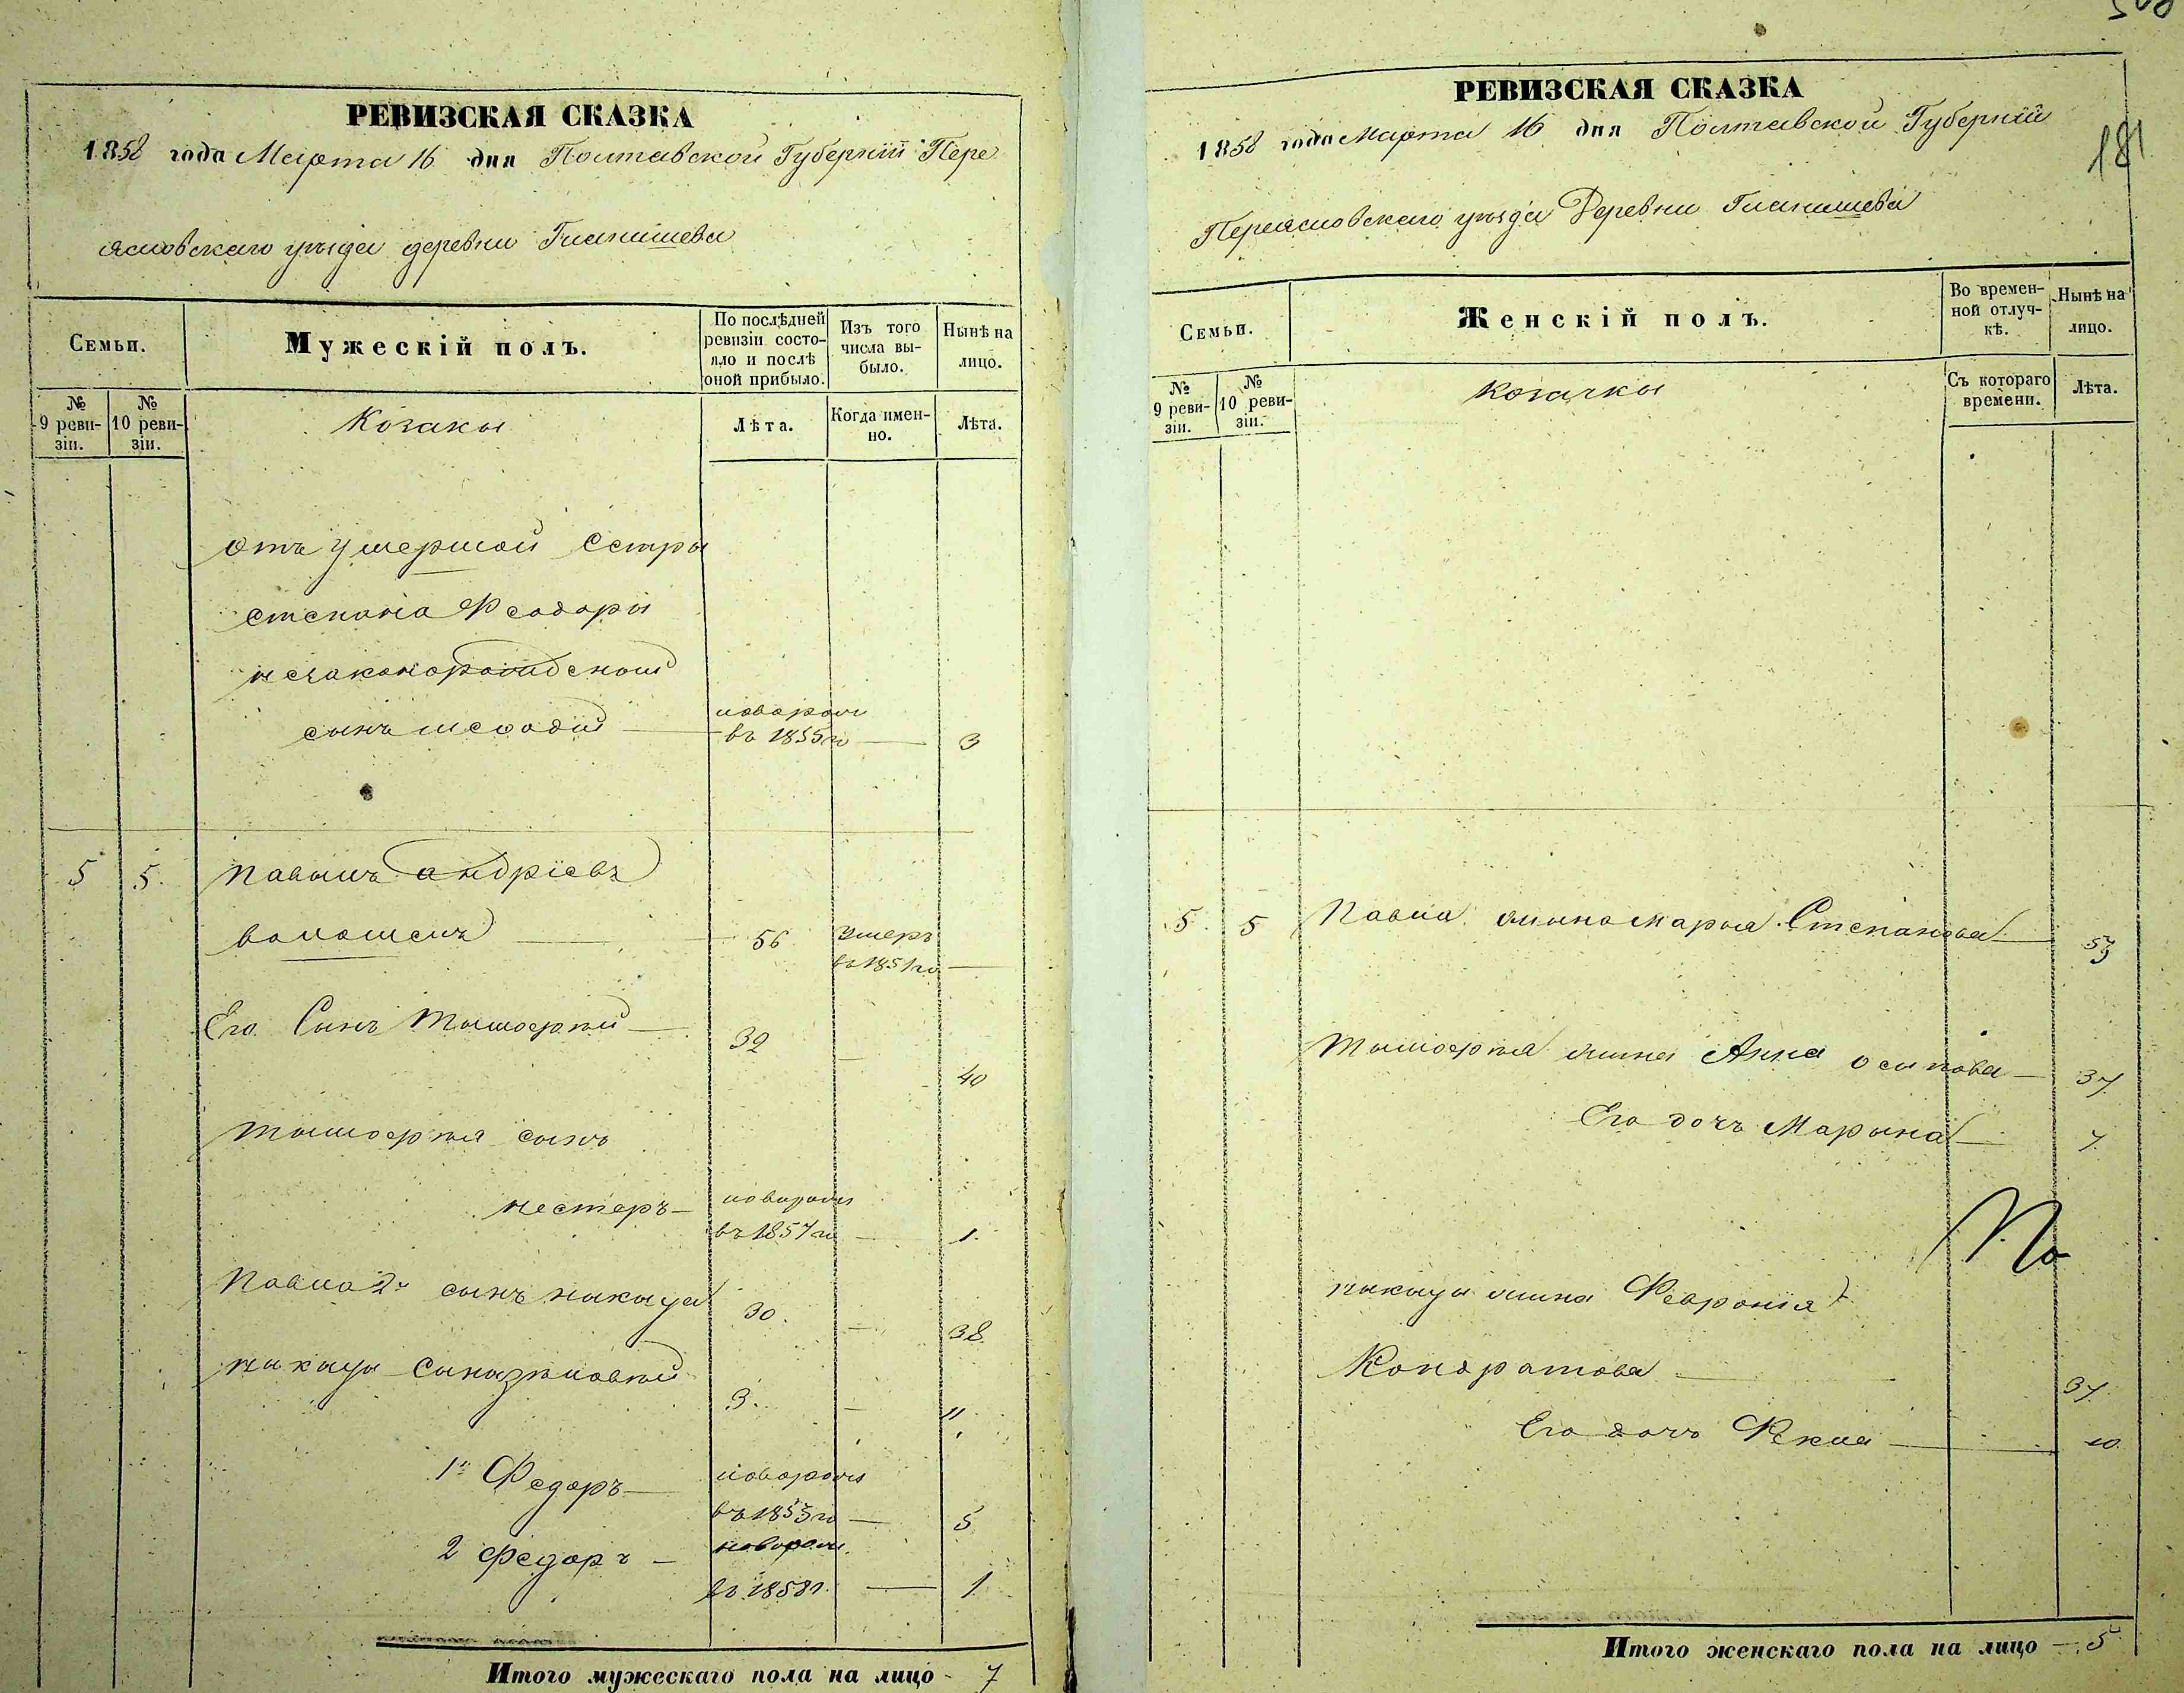 РЕВИЗСКАЯ СКАЗКА
1858 года Марта 16 дня Полтавской Губерніи Пере
яловскаго уѣзда деревни Гланишева
Семьи.
Мужескій полъ.
По послѣдней ревизіи состояло и послѣ оной прибыло.
Изъ того числа выбыло.
Нынѣ на лицо.
№ 9 ревизіи.
№ 10 ревизіи.
Козаки
Лѣта.
Когда именно.
Лѣта.
отъ умершой Сестры
степана Феодоры
незаконорожденой
сынъ
новорож
въ 1855 го 3
5 5. Павелъ андріевъ
волошенъ 56 умеръ
въ 1851 го
Его Сынъ Тымофтей 32
40
тымофтея сынъ
нестеръ новорож
въ 1857 го 1.
Павла 2й сынъ никыта 30.
38
никыты 3. 11
1й Федоръ новорож
въ 1853 го 5
2 Федоръ новорож.
въ 1858 г. 1
Итого мужескаго пола на лицо - 7
РЕВИЗСКАЯ СКАЗКА
1858 года Марта 16 дня Полтавской Губерніи
181
Переясловскаго уѣзда Деревни Гланишева
Семьи.
Женскій полъ.
Во временной отлучкѣ.
Нынѣ на лицо.
№ 9 ревизіи.
№ 10 ревизіи.
Козачкы
Съ котораго времени.
Лѣта.
5. 5 Павла жына марыя Степанова
Тымофтея жына Анна осыпова 37
Его дочъ Марына 7.
По
никыты жына Февронія
Кондратова 37.
Его дочъ Фекла 10
Итого женскаго пола на лицо - 5